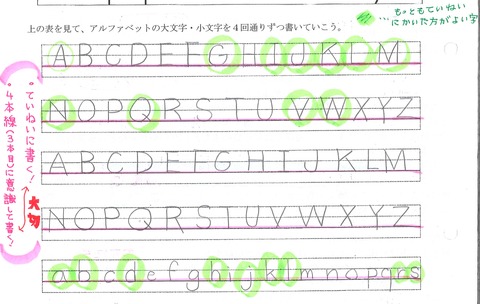 …もっともていねい
にかいた方がよい字
上の表を見て、アルファベットの大文字・小文字を4回通りずつ書いていこう。
A B C D E F G H I J K L M
N O P Q R S T U V W X Y Z
A B C D E F G H I J K L M
N O P Q R S T U V W X Y Z
a b c d e f g h i j k l m n o p q r s
。ていねいに書く!
。4本線(3本目)に意識して書く!
大切